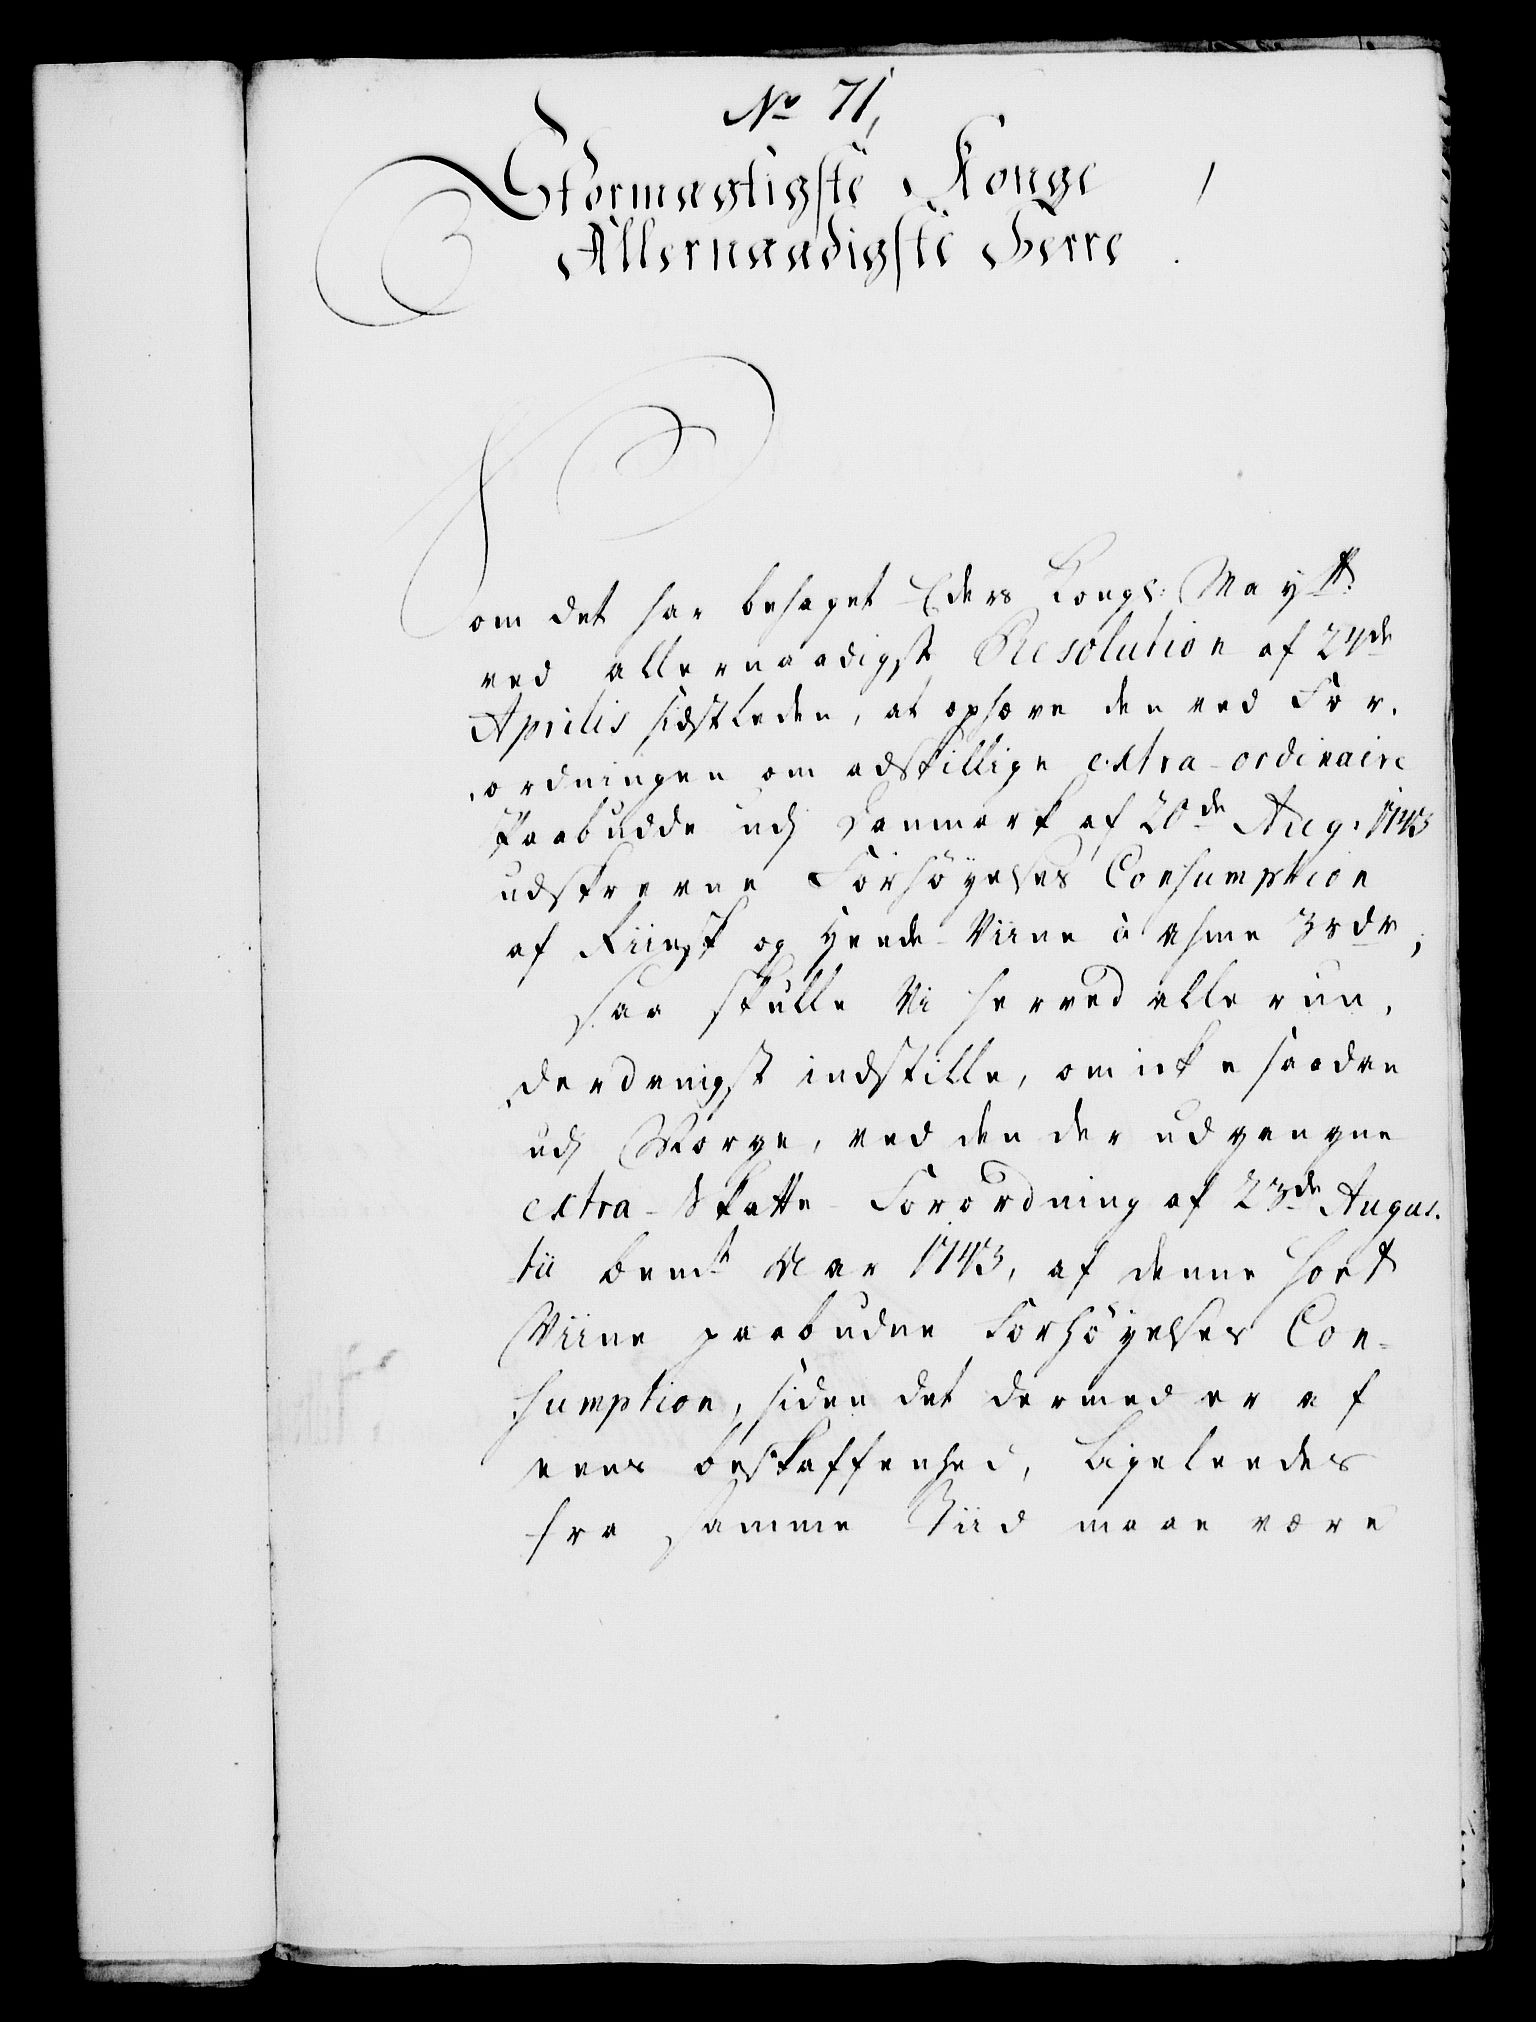 No 71,
Stormægtigste Konge
Allernaadigste Herre
Som det har behaget Eders Kongl: Mayst:
ved allernaadigst Resolution af 24de
Aprilis sidstleden, at ophæve den ved For,
ordningen om adskillige extra-ordinaire
Paabudde udj Danmark af 20de Aug: 1743
udskrevne Forhøyelses Consumption
af Riinsk og Heede Viine à Ahme 3 rdr,
saa skulle Vi herved allerun,
derdanigst indstille, om icke saadan
udj Norge, ved den der udgangne
extra-Skatte-Forordning af 23de Augus,
tii bemte Aar 1743, af denne Sort
Viine paabudne Forhøyelses Con-
sumption, siden det dermed er af
eens beskaffenhed, ligeleedes
fra samme Tiid maae være